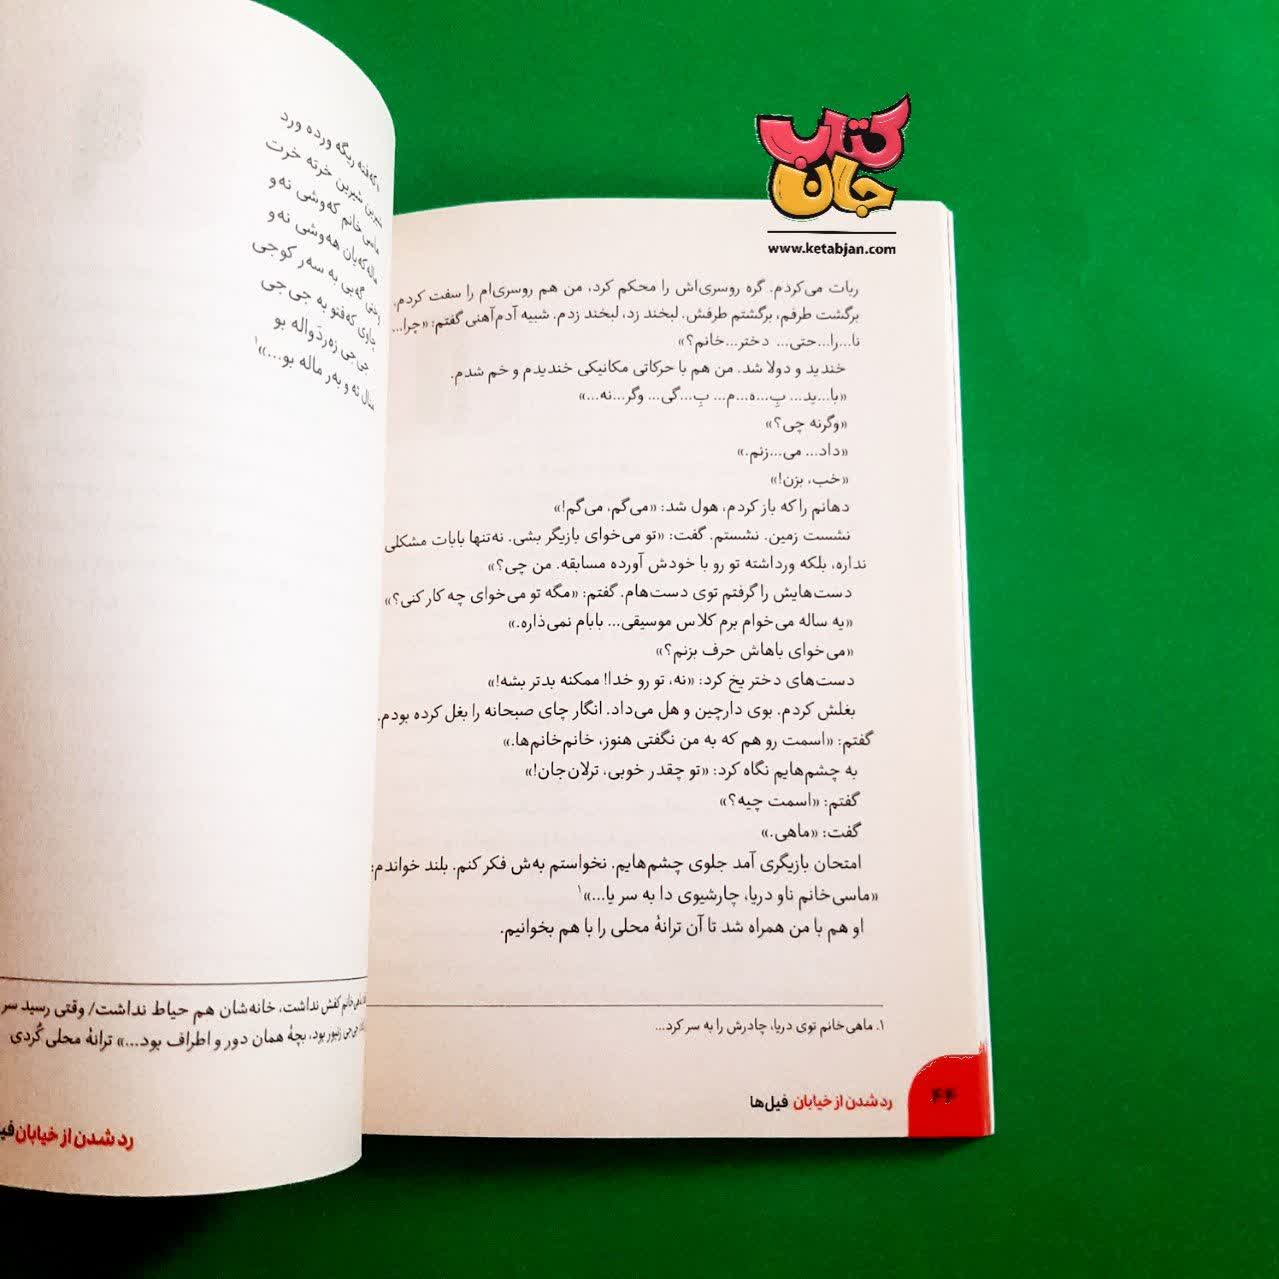 کتاب
جان
www.ketabjan.com
ربات می‌کردم. گره روسری‌اش را محکم کرد، من هم روسری‌ام را سفت کردم.
برگشت طرفم، برگشتم طرفش. لبخند زد، لبخند زدم. شبیه آدم‌آهنی گفتم: «چرا...
نا...را...حتی... دختر...خانم؟»
خندید و دولا شد. من هم با حرکاتی مکانیکی خندیدم و خم شدم.
«با...ید... بِ...ه...م... بِ...گی... وگر...نه...»
«وگرنه چی؟»
«داد... می...زنم.»
«خب، بزن!»
دهانم را که باز کردم، هول شد: «می‌گم، می‌گم!»
نشست زمین. نشستم. گفت: «تو می‌خوای بازیگر بشی. نه‌تنها بابات مشکلی
نداره، بلکه ورداشته تو رو با خودش آورده مسابقه. من چی؟»
دست‌هایش را گرفتم توی دست‌هام. گفتم: «مگه تو می‌خوای چه کار کنی؟»
«یه ساله می‌خوام برم کلاس موسیقی... بابام نمی‌ذاره.»
«می‌خوای باهاش حرف بزنم؟»
دست‌های دختر یخ کرد: «نه، تو رو خدا! ممکنه بدتر بشه!»
بغلش کردم. بوی دارچین و هل می‌داد. انگار چای صبحانه را بغل کرده بودم.
گفتم: «اسمت رو هم که به من نگفتی هنوز، خانم‌خانم‌ها.»
به چشم‌هایم نگاه کرد: «تو چقدر خوبی، ترلان‌جان!»
گفتم: «اسمت چیه؟»
گفت: «ماهی.»
امتحان بازیگری آمد جلوی چشم‌هایم. نخواستم به‌ش فکر کنم. بلند خواندم:
«ماسی‌خانم ناو دریا، چارشیوی دا به سر یا...»۱
او هم با من همراه شد تا آن ترانهٔ محلی را با هم بخوانیم.
۱. ماهی‌خانم توی دریا، چادرش را به سر کرد...
رد شدن از خیابان فیل‌ها
۴۴
که‌فته ریگه ورده ورد
شیرین شیرین خرته خرت
ماسی خانم که‌وشی نه‌و
ماله‌که‌یان هه‌وشی نه‌و
وختی گه‌یی به سه‌ر کوجی
چاوی که‌فتو به جی‌جی
جی‌جی زه‌رد‌واله بو
منال ئه و به‌ر ماله بو...»۱
خانم کفش نداشت، خانه‌شان هم حیاط نداشت/ وقتی رسید سر
زنبور بود، بچهٔ همان دور و اطراف بود...» ترانهٔ محلی کُردی
رد شدن از خیابان